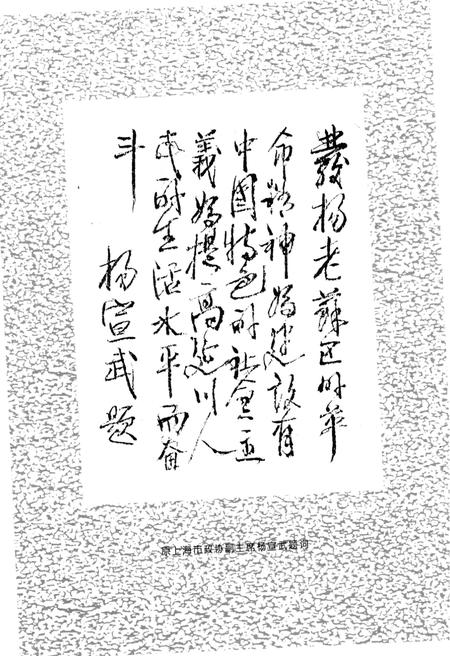 發扬老蘇区的革
命精神为建設有
中國特色的社会主
義为提高延川人
民的生活水平而奋
斗
杨宣武题
原上海市政协副主席杨宣武题词